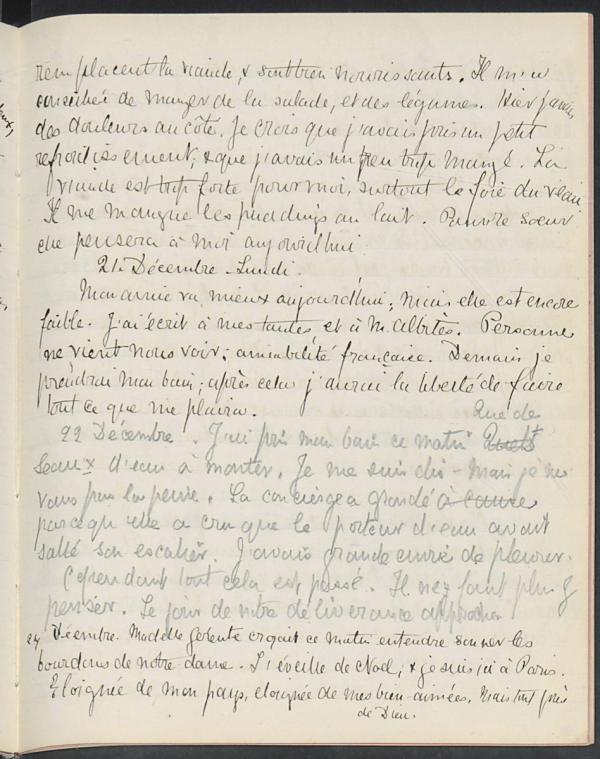 remplacent la viande, & sont bien nourissants. Il m'a
conseillée de manger de la salade, et des légumes. Hier j'avais
des douleurs au côté. Je crois que j'avais pris un petit
refroidissement, & que j'avais un peu trop mangé. La
viande est trop forte pour moi, surtout le foie du veau.
Il me manque les puddings au lait. Pauvre soeur
elle pensera à moi aujourd'hui
21 Décembre. Lundi.
Mon amie va mieux aujourd'hui; mais elle est encore
faible. J'ai écrit à mes tantes et à M. Albitès. Personne
ne vient nous voir; amiabilité française. Demain je
prendrai mon bain; après cela j'aurai la liberté de faire
tout ce que me plaira.
Que de
22 Décembre. J'ai pris mon bain ce matin Quels
seaux d'eau à monter. Je me suis dis - Mais je ne
vaus pas la peine. La concierge a grondé à cause
parcequ'elle a cru que le porteur d'eau avait
salté son escalier. J'avais grande envie de pleurer.
Cependant tout cela est passé. Il ne faut plus y
penser. Le jour de notre délivrance approche.
24 Décembre. Madelle croyait ce matin entendre sonner les
bourdons de notre dame. L'éveille de Noel; & je suis ici à Paris.
Eloignée de mon pays, eloignée de mes bien-aimées. Mais tout près
de Dieu.